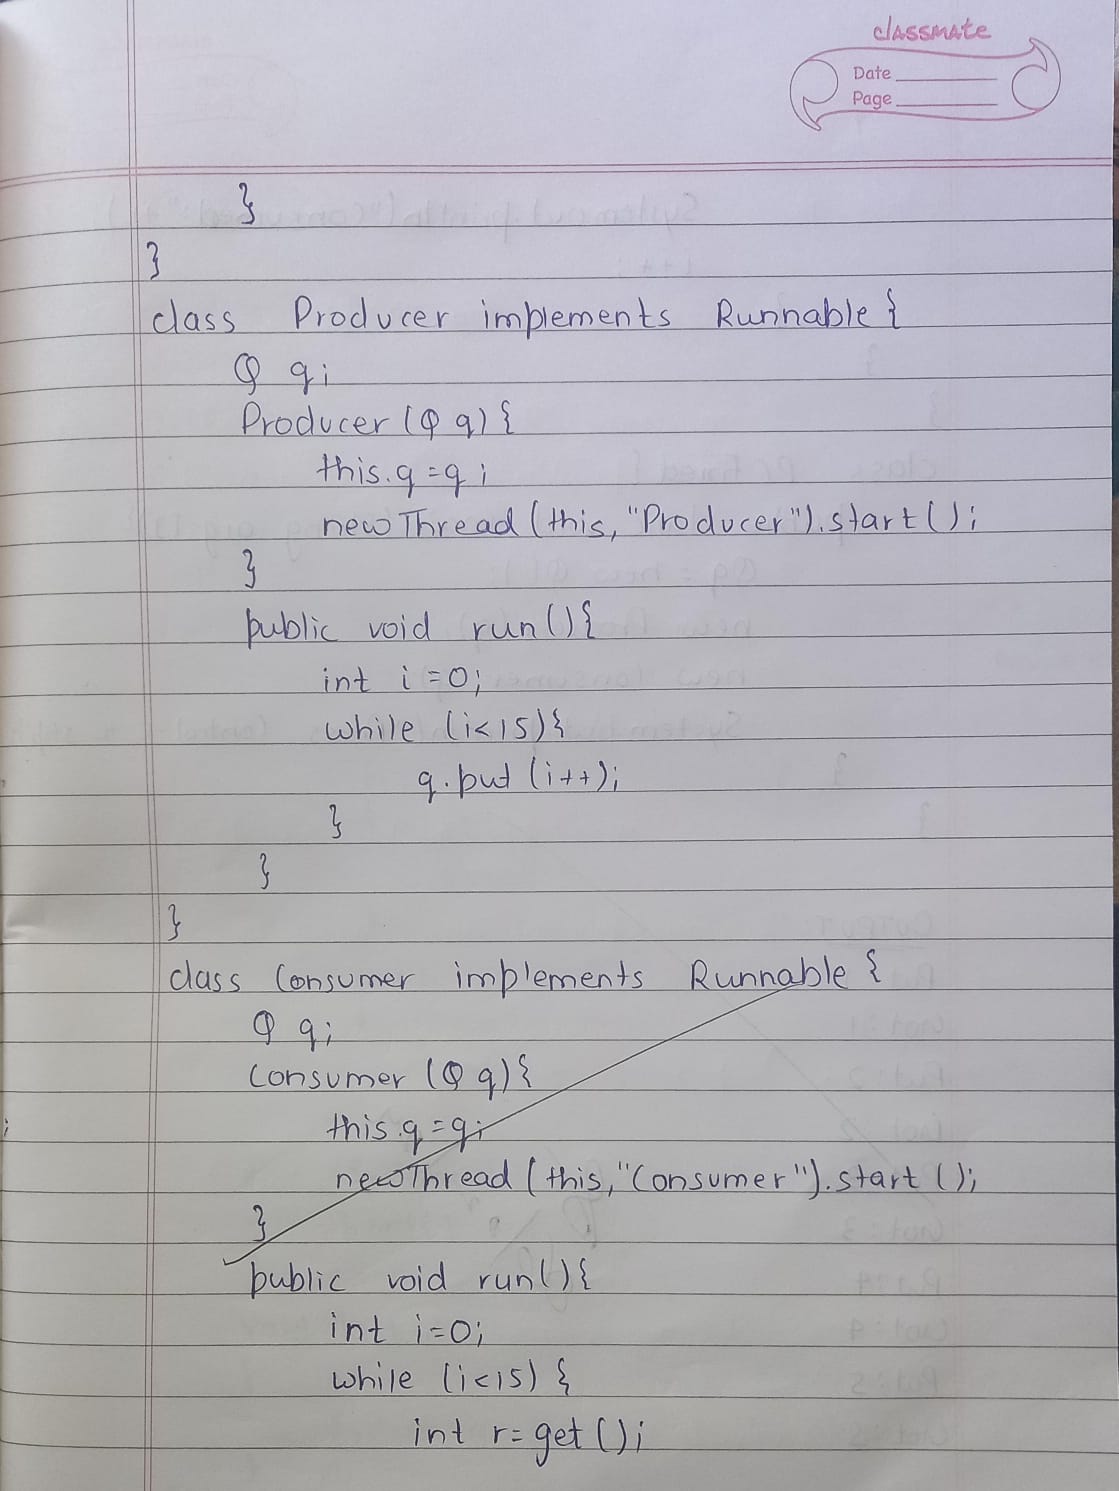 classmate
Date
Page
}
}
class Producer implements Runnable {
Q q;
Producer (Q q) {
this.q = q;
new Thread (this, "Producer").start();
}
public void run(){
int i=0;
while (i<15){
q.put (i++);
}
}
}
class Consumer implements Runnable {
Q q;
Consumer (Q q){
this.q = q;
new Thread (this, "Consumer").start ();
}
public void run(){
int i=0;
while (i<15) {
int r= get ();